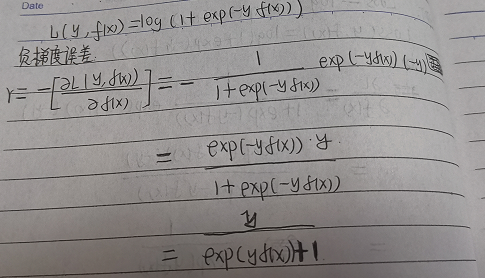 Date
L(y, f(x)) = log (1 + exp(-y f(x)))
负梯度误差
r = -[∂L(y, f(x)) / ∂f(x)] = - 1 / (1 + exp(-yf(x))) exp(-yf(x)) (-y)
= exp(-yf(x)) · y / (1 + exp(-yf(x)))
= y / (exp(yf(x)) + 1)